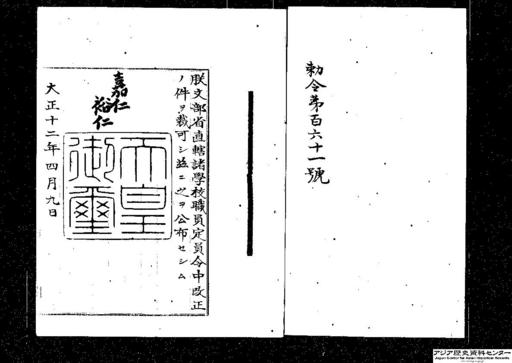 勅令第百六十一號
朕文部省直轄諸學校職員定員令中改正
ノ件ヲ裁可シ茲ニ之ヲ公布セシム
嘉仁
裕仁
天皇
御璽
大正十二年四月九日
アジア歴史資料センター
Japan Center for Asian Historical Records